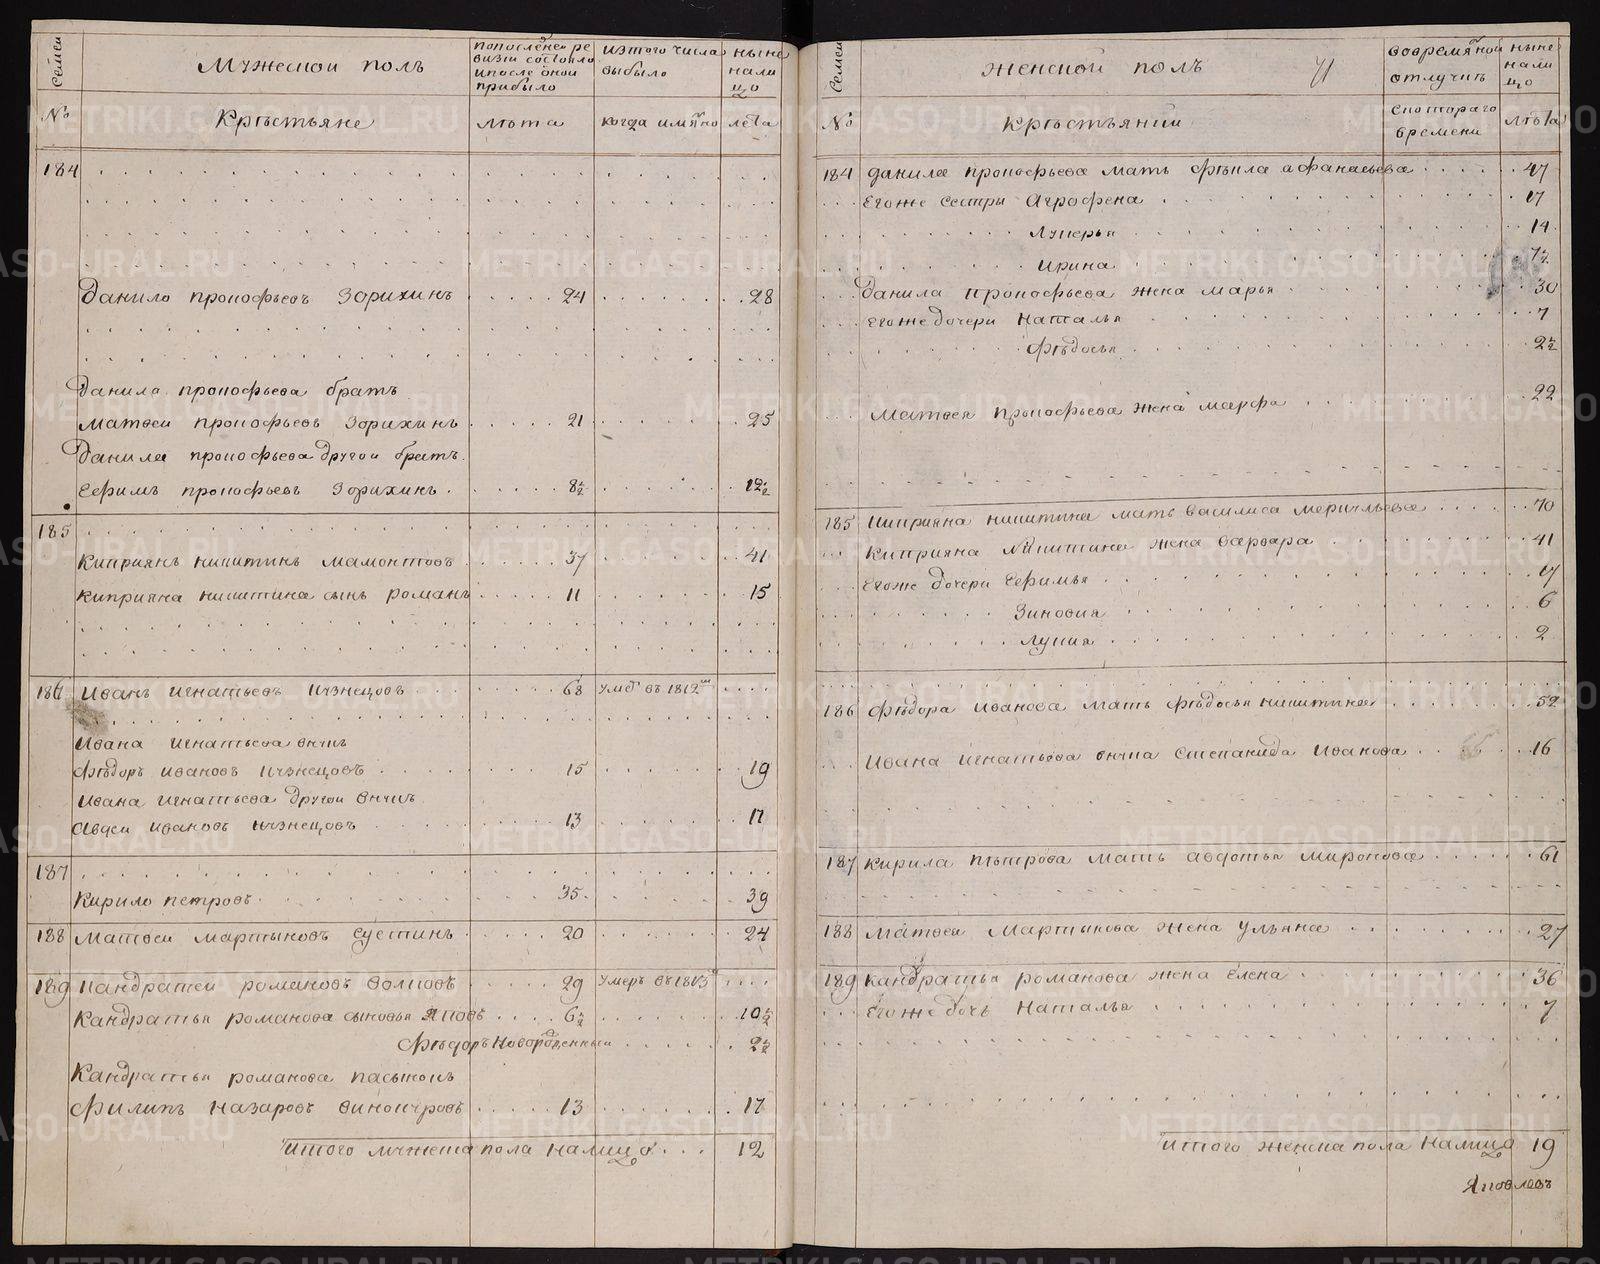 Семеи
Мужескои полъ
попоследнеи ре
визи состояло
ипосле онои
прибыло
изтого числа
выбыло
ныне
нали
цо
№
Крѣстьяне
лѣта
когда имяно
лета
184
Данило прокофьевъ Зорихинъ 24 28
Данила прокофьева братъ
Матвеи прокофьевъ Зорихинъ 21 25
Данила прокофьева другои братъ
Еєимъ прокофьевъ Зорихинъ 8½ 12½
185
Киприянъ никитинъ мамонтовъ 37 41
киприяна никитина сынъ романъ 11 15
186 Иванъ игнатьевъ кузнецовъ 68 умѣ въ 1812м
Ивана игнатьева внукъ
Фѣдоръ ивановъ кузнецовъ 15 19
Ивана игнатьева другои внукъ
Авдеи ивановъ кузнецовъ 13 17
187
Кирило петровъ 35 39
188 Матвеи мартыновъ сустинъ 20 24
189 Кандратеи романовъ волковъ 29 умеръ въ1813
Кандратья романова сыновья яковъ 6½ 10½
Фѣдоръ новорожденный 2½
Кандратья романова пасынокъ
Филипъ назаровъ винокуровъ 13 17
итого мужеска пола налицо 12
Семеи
Женской полъ
вовремянной
отлучкѣ
ныне
нали
цо
№
Крѣстьянки
скотораго
времени
лѣта
184 данила прокофьева мать фѣкла афанасьева 47
Егоже сестры Аграфена 17
Лукерья 14
ирина 7½
данила прокофьева жена марья 30
Егоже дочери Наталья 7
Фѣдосья 2½
Матвея прокофьева жена марфа 22
185 Киприяна никитина мать василиса меркульева 70
Киприяна Никитина жена варвара 41
Егоже дочери Еєимья 17
Зиновия 6
лукия 2
186 Фѣдора иванова мать фѣдосья никитина 52
Ивана игнатьева внука степанида иванова 16
187 кирила пѣтрова мать авдотья миронова 61
188 Матвеи мартынова жена ульяна 27
189 кандратья романова жена елена 36
Егоже дочь Наталья 7
итого женска пола налицо 19
Яковлевъ
METRIKI.GASO-URAL.RU